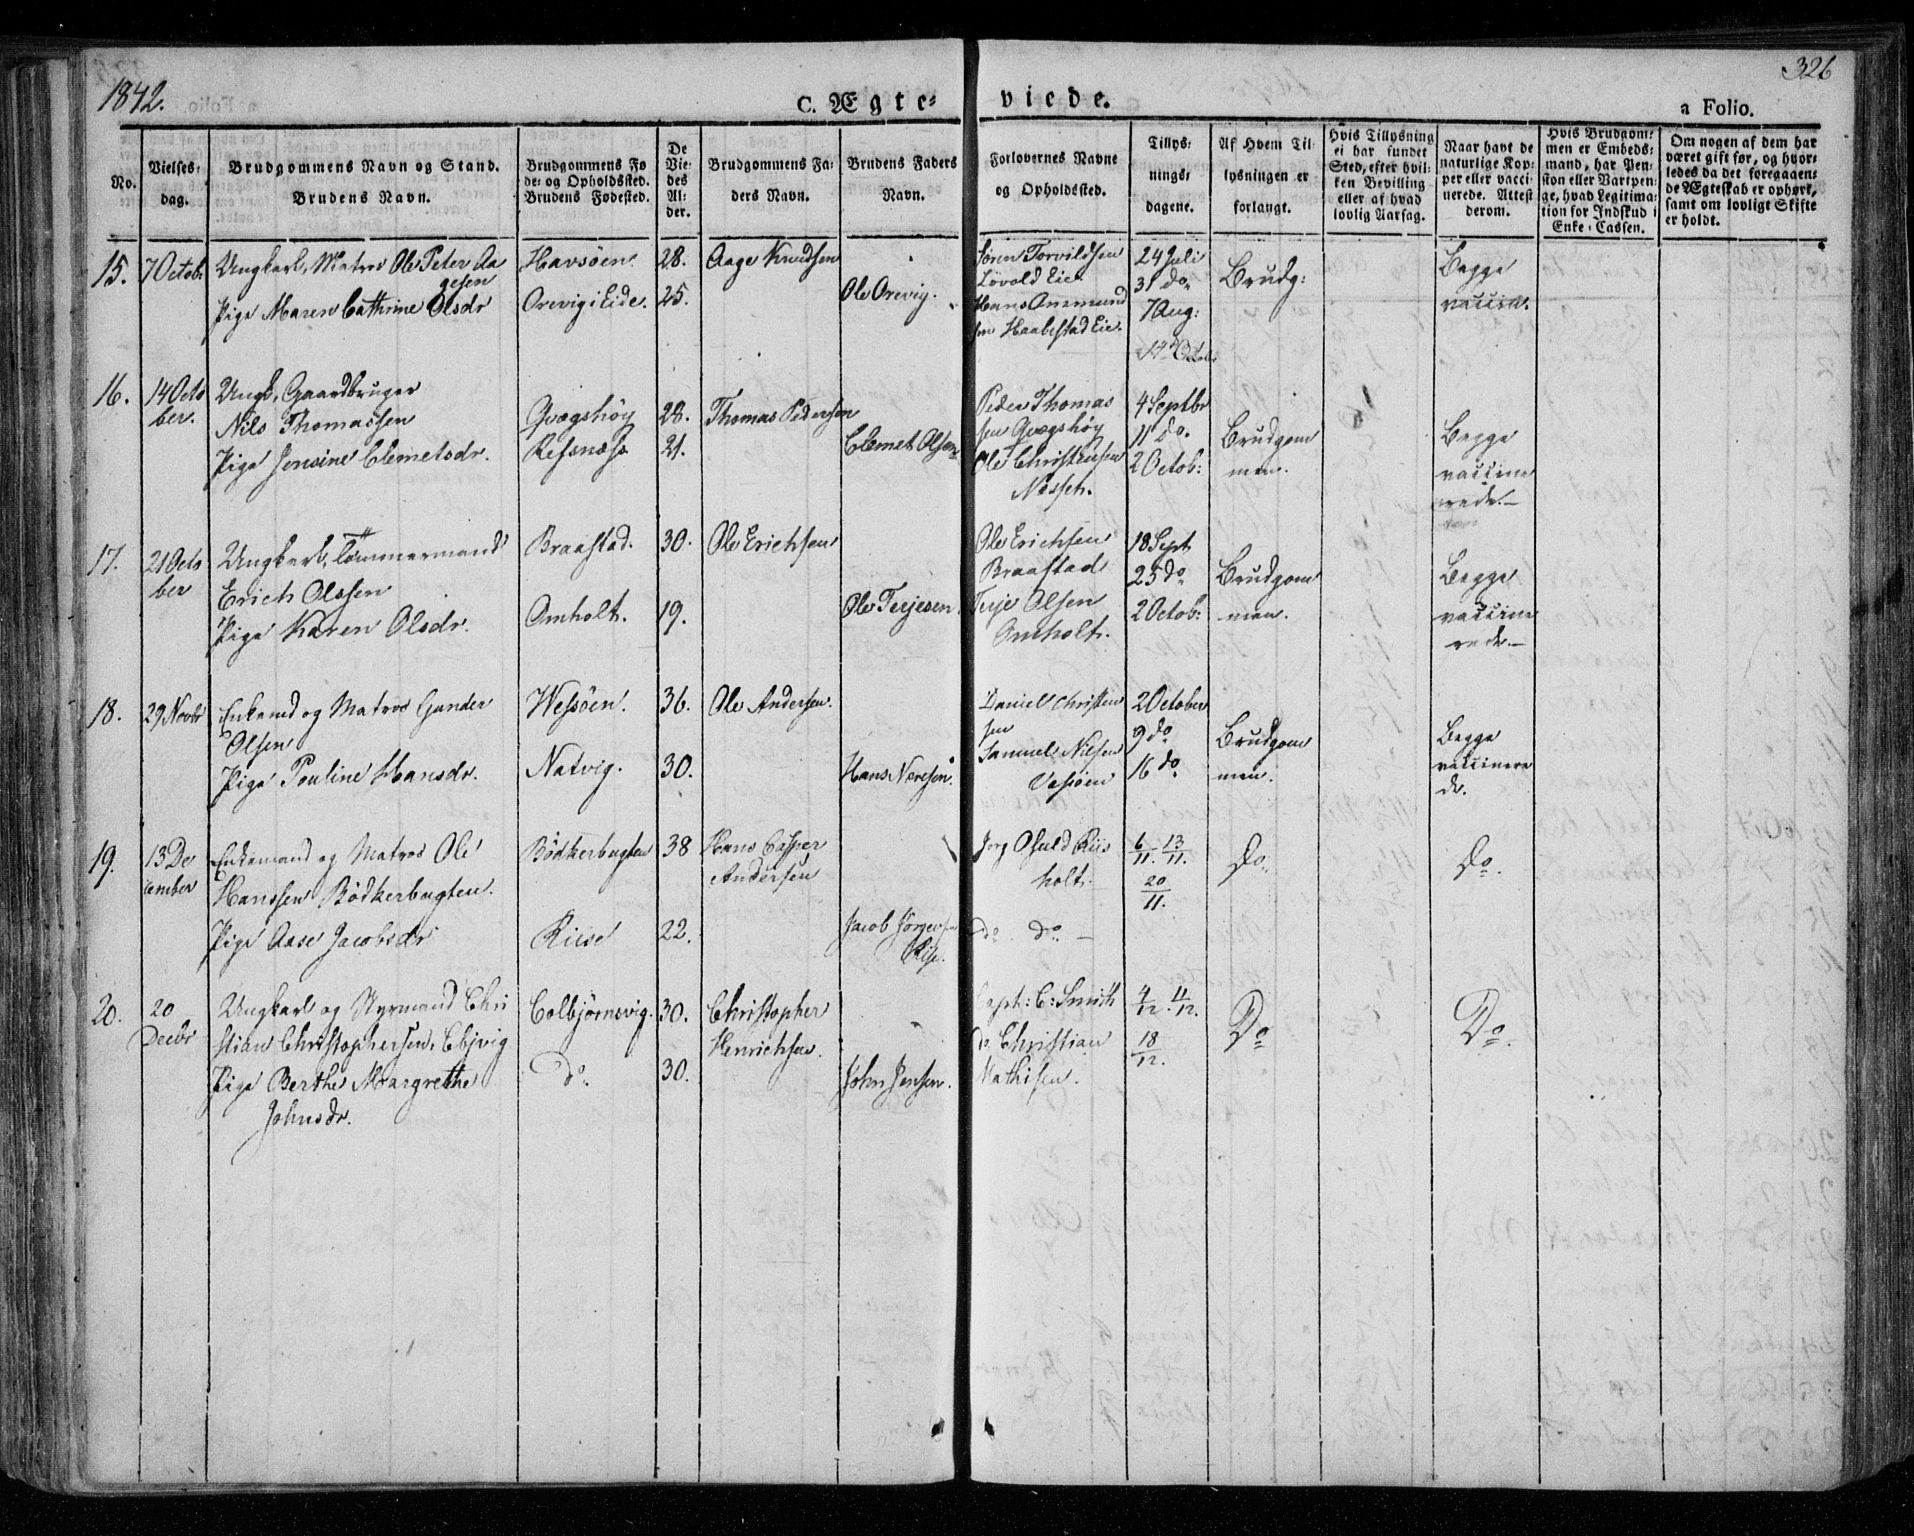 1842.
326
C. Ægte-
viede.
a Folio.
No.
Vielses-
dag.
Brudgommens Navn og Stand.
Brudens Navn.
Brudgommens Fø
de- og Opholdssted.
Brudens Fødested.
De
Vie-
des
Al-
der.
Brudgommens Fa-
ders Navn.
Brudens Faders
Navn.
Forlovernes Navne
og Opholdssted.
Tillys-
nings-
dagene.
Af Hvem Til-
lysningen er
forlangt.
Hvis Tillysning
ei har fundet
Sted, efter hvil-
ken Bevilling
eller af hvad
lovlig Aarsag.
Naar havt de
naturlige Kop-
per eller vacci-
nerede. Attest
derom.
Hvis Brudgom-
men er Embeds-
mand, har Pen-
sion eller Vartpen-
ge, hvad Legitima-
tion for Indskud i
Enke-Cassen.
Om nogen af dem har
været gift før, og hvor-
ledes da det foregaaen-
de Ægteskab er ophørt,
samt om lovligt Skifte
er holdt.
15. 7 Octob. Ungkarl, Matros Ole Peter Aa
gesen
Havsöen. 28. Aage Knudsen
Pige Maren Cathrine Olsdr
Orevig i Eide. 25. Ole Orevig.
Sören Torvildsen
Lövold Eie
Hans Ommund
sen Haabestad Eie.
24 Juli
31 do
7 Aug:
14 Octob.
Brudg:
Begge
vaccin.
16. 14 Octo
ber.
Ungk, Gaardbruger
Nils Thomassen
Pige Jensine Clemetsdr.
Gvegshöy 28. Thomas Pedersen
Refsnæss 21. Clemet Olsen
Peder Thomas
sen Gvegshöy
Ole Christensen
4 Septbr
11 do.
2 Octob:
Brudgom
men.
Begge
vaccine
rede.
17. 21 Octo
ber
Ungkarl, Tömmermand
Erich Olssen
Pige Karen Olsdr.
Braastad. 30. Ole Erichsen
Omholt. 19. Ole Terjesen.
Ole Erichsen
Braastad
Terje Olsen
Omholt.
18 Sept
25 do
2 Octob:
Brudgom
men.
Begge
vaccine
rede.
18. 29 Novbr Enkemd og Matros Gunder
Olsen
Pige Pouline Hansdr.
Wessöen. 36. Ole Andersen.
Natvig. 30. Hans Næresen.
Daniel Christen
sen
Samuel Nilsen
Vessöen
2 October
9 do
16 do
Brudgom
men.
Begge
vaccinere
de.
19. 13 De
cember
Enkemand og Matros Ole
Hanssen Bödkerbugten.
Pige Aase Jacobsdr
Bödkerbugten 38 Hans Casper
Andersen
Riise 22. Jacob Jörgensen
Rise.
Jörg Osuld Riis
holt.
do do
6/11. 13/11.
20/11.
Do
Do.
20. 20
Decbr
Ungkarl og Styrmand Chri
stian Christophersen, Cbjvig
Pige Berthe Margrethe
Johnsdr.
Colbjørnsvig. 30. Christopher
Henrichsen.
do. 30. John Jensen.
Capt: C: Smith
do Christian
Mathisen.
4/12. 11/12.
18/12.
Do
Do.